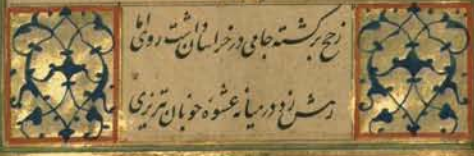 زحج برکشته جامی در خراسان داشت روی اما
رهش زد در میانه عشوه خوبان تبریزی